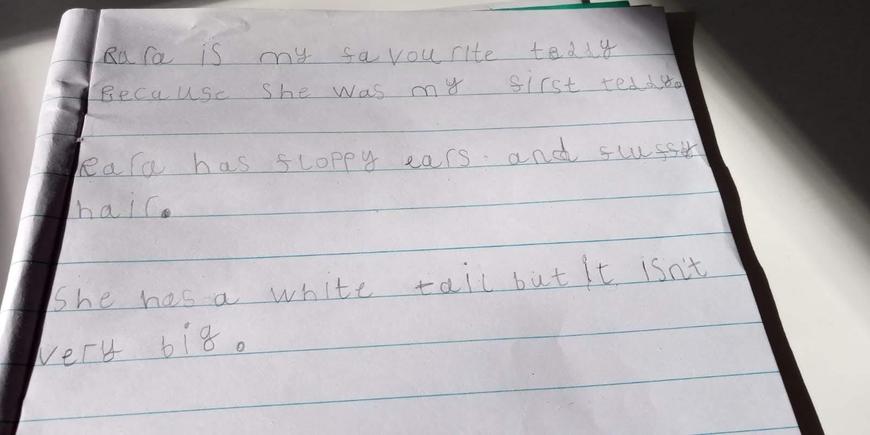 Rara is my favourite teddy
Because she was my first teddy.
Rara has floppy ears. and fluffy
hair.
She has a white tail but it isn't
very big.